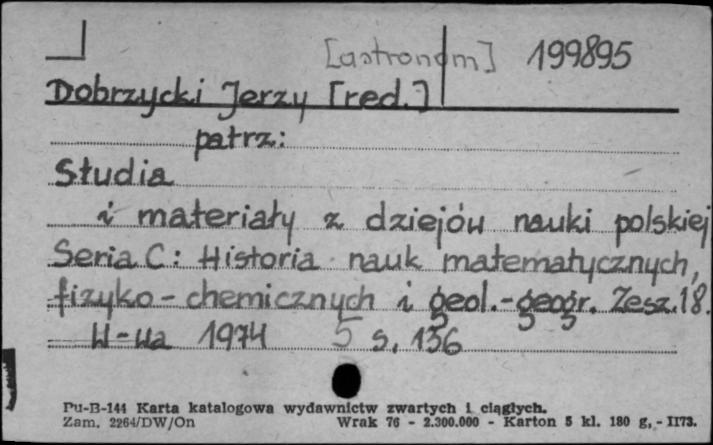 [astronom] 199895
Dobrzycki Jerzy [red.]
patrz:
Studia
i materiały z dziejów nauki polskiej
Seria C: Historia nauk matematycznych,
fizyko-chemicznych i geol.-geogr. Zesz. 18.
W-wa 1974 5 s. 136
Pu-B-144 Karta katalogowa wydawnictw zwartych i ciągłych.
Zam. 2264/DW/On Wrak 76 - 2.300.000 - Karton 5 kl. 180 g, - II73.